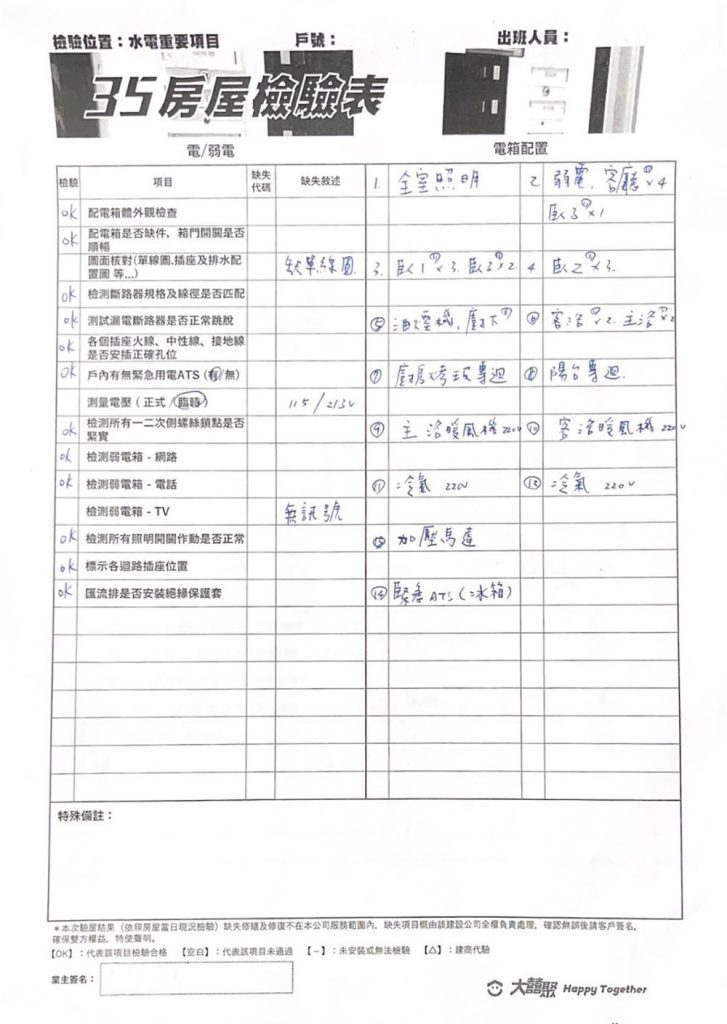 檢驗位置：水電重要項目 戶號： 出班人員：
35房屋檢驗表
電/弱電 電箱配置
檢驗 項目 缺失代碼 缺失敘述 1. 全室照明 2. 弱電、客廳 ×4
ok 配電箱體外觀檢查 臥3 ×1
ok 配電箱是否缺件, 箱門開關是否順暢
圖面核對(單線圖.插座及排水配置圖 等...) 缺單線圖. 3. 臥1 ×3. 臥3 ×2. 4 臥2 ×3.
ok 檢測斷路器規格及線徑是否匹配
ok 測試漏電斷路器是否正常跳脫 ⑤ 油煙機、廚下 ⑥ 客浴 ×2. 主浴 ×2
ok 各個插座火線、中性線、接地線是否安插正確孔位
ok 戶內有無緊急用電ATS (有/無) ⑦ 廚房烤玻專迴 ⑧ 陽台專迴.
測量電壓 ( 正式 / 臨時 ) 115 / 213V
ok 檢測所有一二次側螺絲鎖點是否緊實 ⑨ 主浴暖風機 220V ⑩ 客浴暖風機 220V
ok 檢測弱電箱 - 網路
ok 檢測弱電箱 - 電話 ⑪ 冷氣 220V ⑫ 冷氣 220V
檢測弱電箱 - TV 無訊號
ok 檢測所有照明開關作動是否正常 ⑬ 加壓馬達
ok 標示各迴路插座位置
ok 匯流排是否安裝絕緣保護套 ⑭ 緊急ATS (冰箱)
特殊備註：
＊本次驗屋結果（依照房屋當日現況檢驗）缺失修繕及修復不在本公司服務範圍內, 缺失項目概由該建設公司全權負責處理, 確認無誤後請客戶簽名,
確保雙方權益, 特使聲明。
【OK】：代表該項目檢驗合格 【空白】：代表該項目未通過 【－】：未安裝或無法檢驗 【△】：建商代驗
業主簽名：
大囍聚 Happy Together